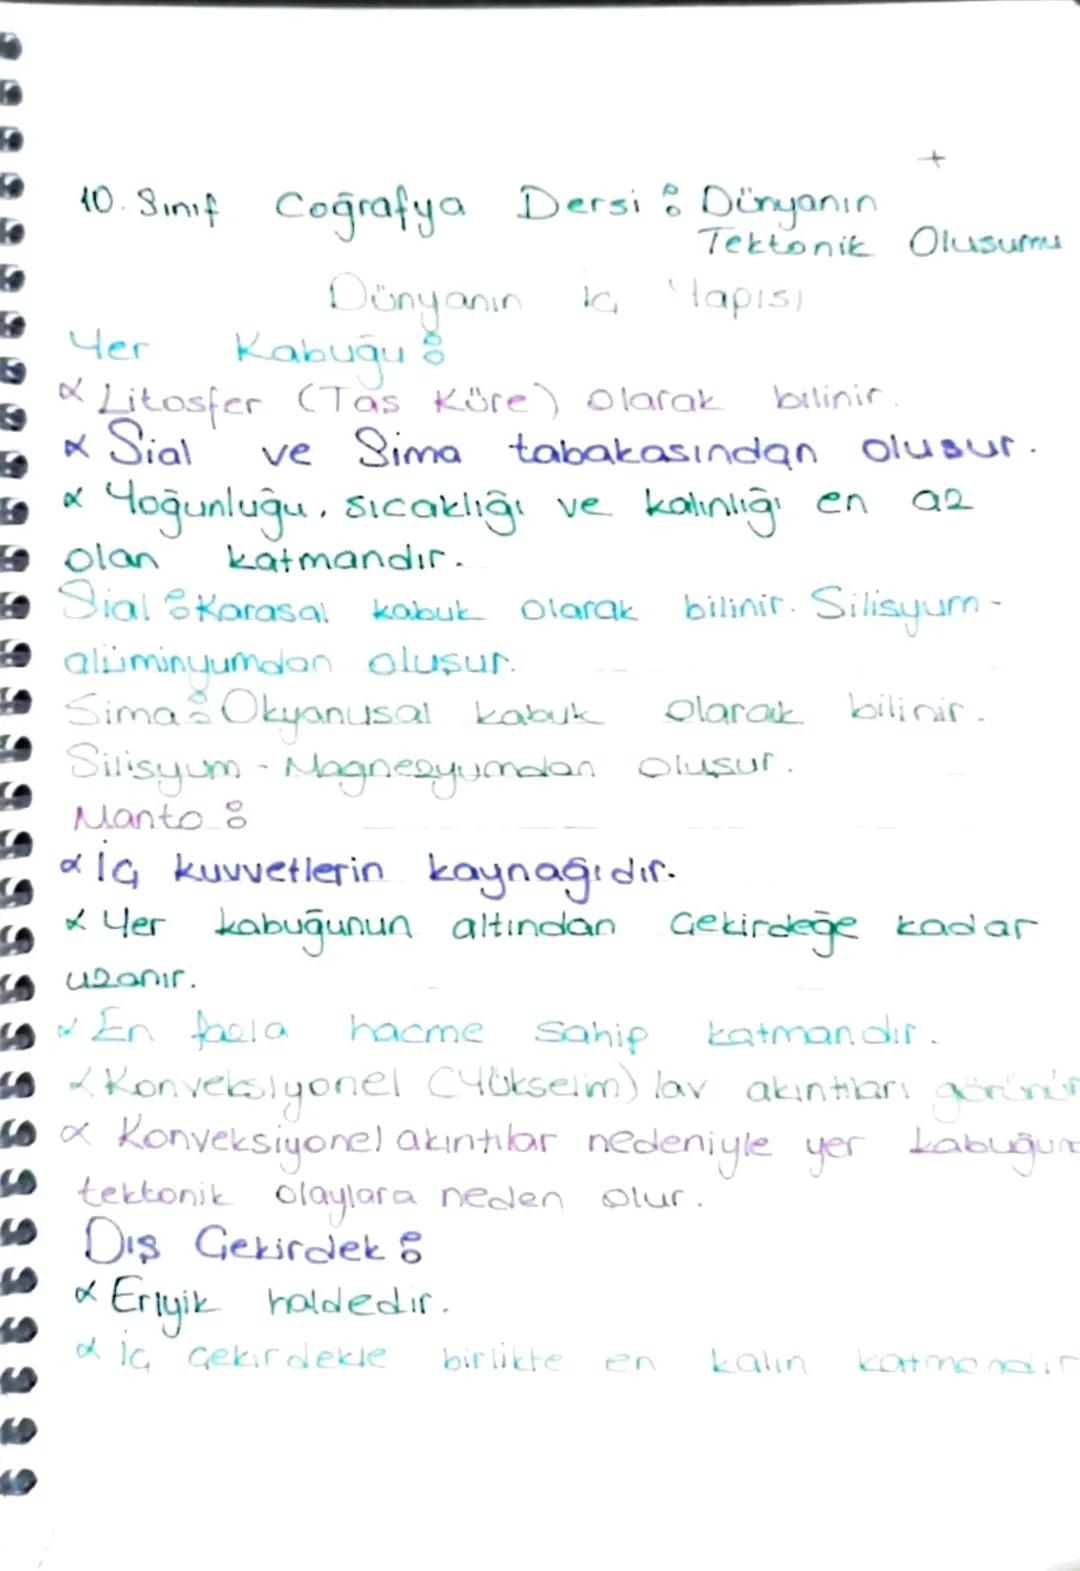 +
10. Sınıf Coğrafya Dersi : Dünyanın
Tektonik Olusumu
Dünyanın iç Yapısı
Yer Kabuğu :
Litosfer (Tas Küre) olarak bilinir.
Sial ve Sima tabakasından olusur.
Yoğunluğu, sıcaklığı ve kalınlığı en az
olan katmandır.
Sial : Karasal kabuk olarak bilinir. Silisyum-
alüminyumdan oluşur.
Sima : Okyanusal kabuk olarak bilinir.
Silisyum - Magnezyumdan oluşur.
Manto :
iç kuvvetlerin kaynağıdır.
Yer kabuğunun altından çekirdeğe kadar
uzanır.
En fazla hacme sahip katmandır.
Konveksiyonel (Yükselim) lav akıntıları görünür
Konveksiyonel akıntılar nedeniyle yer
tektonik olaylara neden olur.
Dış Çekirdek :
Eriyik haldedir.
iç çekirdekle birlikte en kalın katmandır